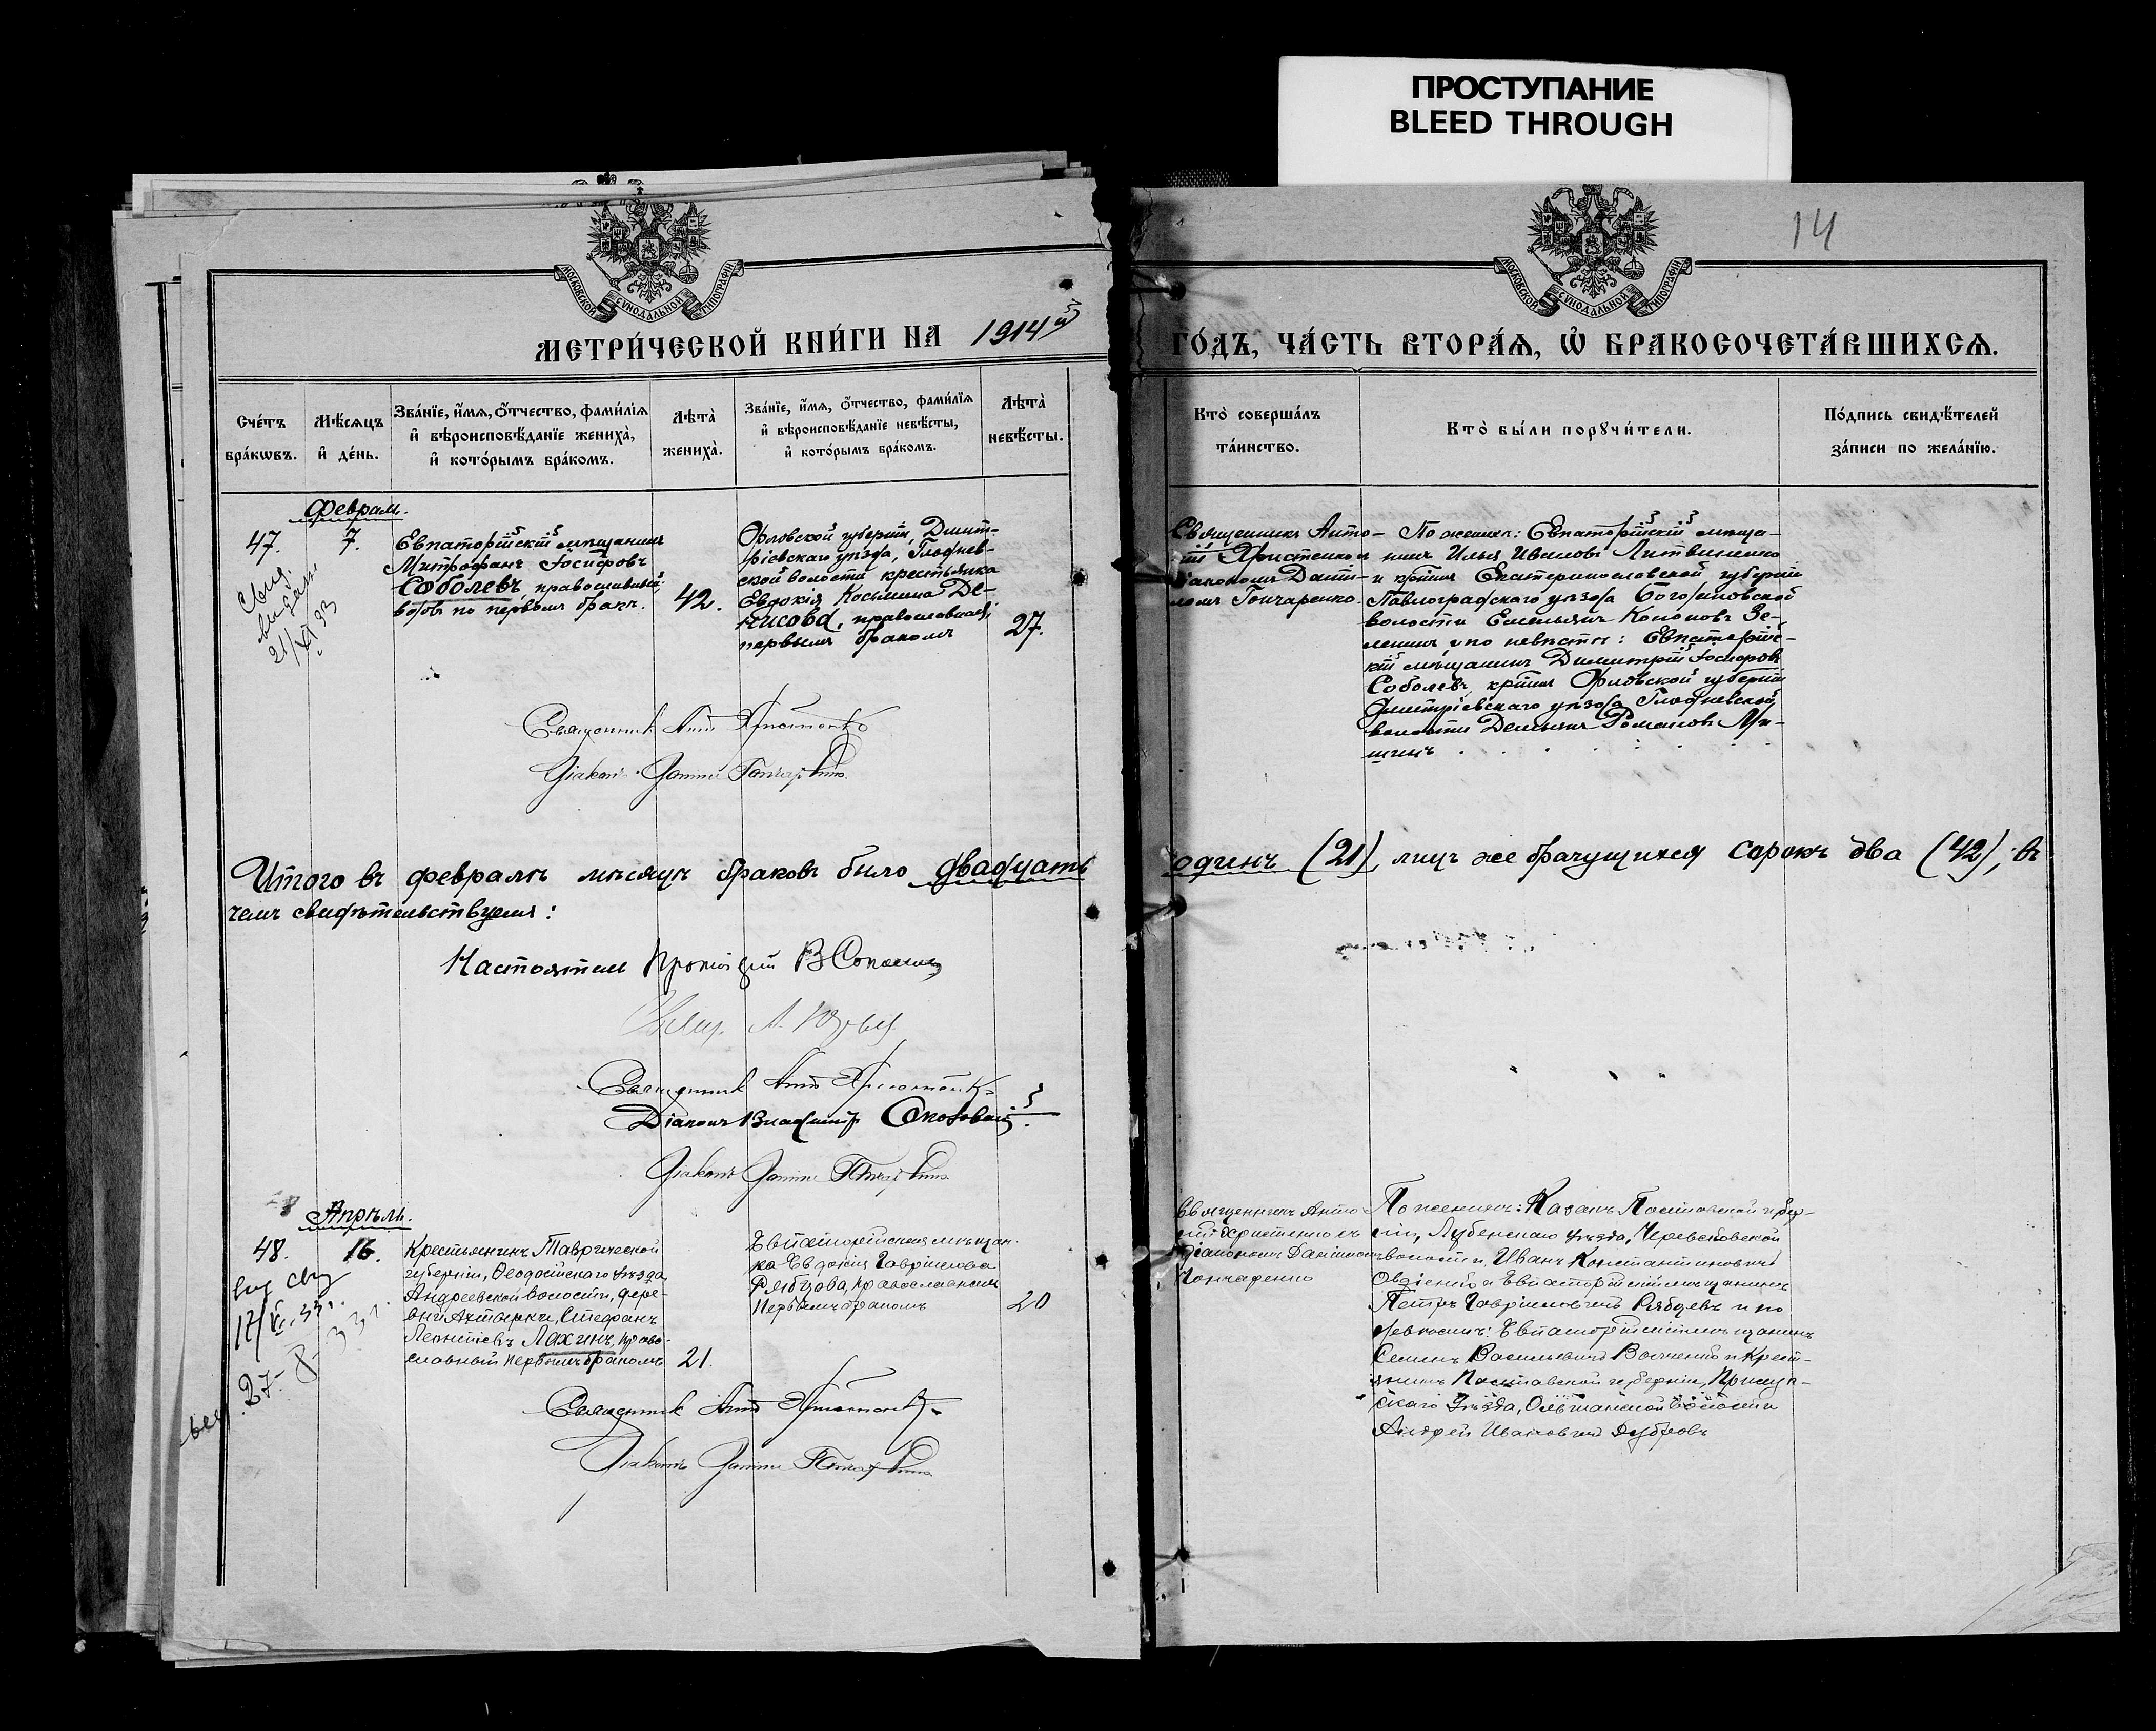 ПРОСТУПАНИЕ
BLEED THROUGH
14
МОСКОВСКОЙ СѴНОДАЛЬНОЙ ТИПОГРАФІИ
МОСКОВСКОЙ СѴНОДАЛЬНОЙ ТИПОГРАФІИ
МЕТРИ́ЧЕСКОЙ КНИ́ГИ НА 1914й
ГО́ДЪ, ЧА́СТЬ ВТОРА́Ѧ, Ѽ БРАКОСОЧЕТА́ВШИХСѦ.
Сче́тъ
бра́кѡвъ.
Мѣ́сѧцъ
и҆ де́нь.
Зва́нїе, и҆́мѧ, ѻ҆́тчество, фами́лїѧ
и҆ вѣроисповѣ́данїе жениха̀,
и҆ кото́рымъ бра́комъ.
Лѣта̀
жениха̀.
Зва́нїе, и҆́мѧ, ѻ҆́тчество, фами́лїѧ
и҆ вѣроисповѣ́данїе невѣ́сты,
и҆ кото́рымъ бра́комъ.
Лѣта̀
невѣ́сты.
Кто̀ соверша́лъ
та́инство.
Кто̀ бы́ли порꙋчи́тели.
По́дпись свидѣ́телей
за́писи по жела́нїю.
Февраль.
47.
7.
Евпаторійскій мѣщанинъ
Митрофанъ Іосифовъ
Соболевъ, православный,
вдовъ по первомъ бракѣ.
42.
Орловской губерніи, Дмит-
ріевскаго уѣзда, Глоднев-
ской волости крестьянка
Евдокія Косьмина Де-
нисова, православная,
первымъ бракомъ
27.
Священникъ Анто-
ній Христенко съ
діакономъ Дани-
ломъ Гончаренко.
По женихѣ: Евпаторійскій мѣща-
нинъ Илья Ивановъ Литвиненко
и кр-нинъ Екатеринославской губерніи
Павлоградскаго уѣзда Богодаровской
волости Емельянъ Кононовъ Зе-
ленинъ; по невѣстѣ: Евпаторійс-
кій мѣщанинъ Димитрій Іосифовъ
Соболевъ, кр-нинъ Орловской губерніи
Дмитріевскаго уѣзда Глодневской
волости Демьянъ Романовъ Ми-
шинъ
Священникъ Ант. Христенко
Діаконъ Данилъ Гончаренко
Итого въ февралѣ мѣсяцѣ браковъ было двадцать
одинъ (21), лицъ же брачущихся сорокъ два (42), въ
чемъ свидѣтельствуемъ:
Настоятель Протоіерей В
Священникъ Ант. Христенко
Діаконъ Владиміръ
Діаконъ Данилъ Гончаренко
Апрѣль.
48.
16.
Крестьянинъ Таврической
губерніи, Ѳеодосійскаго уѣзда,
Андреевской волости, дере-
вни Ахтырки, Стефанъ
Леонтіевъ Лахинъ, право-
славный первымъ бракомъ
21
Евпаторійская мѣщан-
ка Евдокія Гавріилова
Рябцова, православная
первымъ бракомъ
20
Священникъ Анто-
ній Христенко съ
діакономъ Даниломъ
Гончаренко
По женихѣ: Казакъ Полтавской губер-
ніи, Лубенскаго уѣзда,
волости, Иванъ Константиновичъ
Овдіенко и Евпаторійскій мѣщанинъ
Петръ Гавріиловичъ Рябцевъ и по
невѣстѣ: Евпаторійскій мѣщанинъ
Семенъ Васильевичъ и Крест-
янинъ Полтавской губерніи, Прилук-
скаго Уѣзда, Ольшанской волости
Андрей Ивановичъ Дубровъ
Священникъ Ант. Христенко
Діаконъ Данилъ Гончаренко